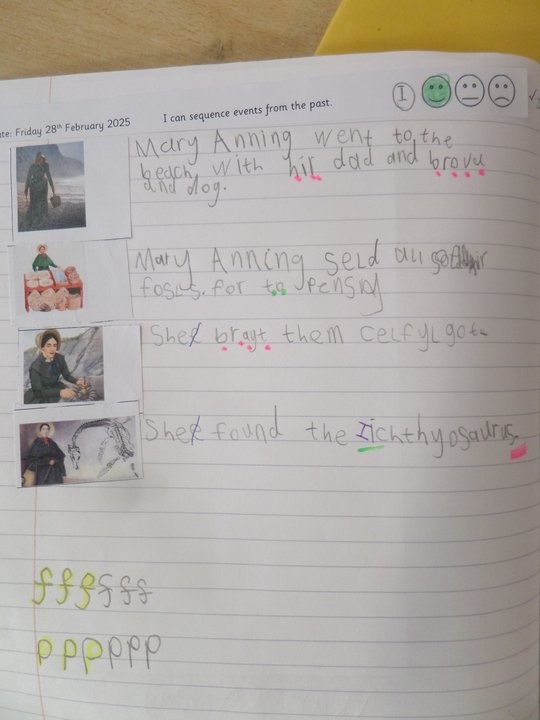 I
ate: Friday 28th February 2025
I can sequence events from the past.
Mary Anning went to the
beach with hir dad and brovu
and dog.
Mary Anning seld all
fosils. for to pensiy
She brayt them celfyl got
She found the Iichthyosaurus.
f f f f f f
p p p p p p